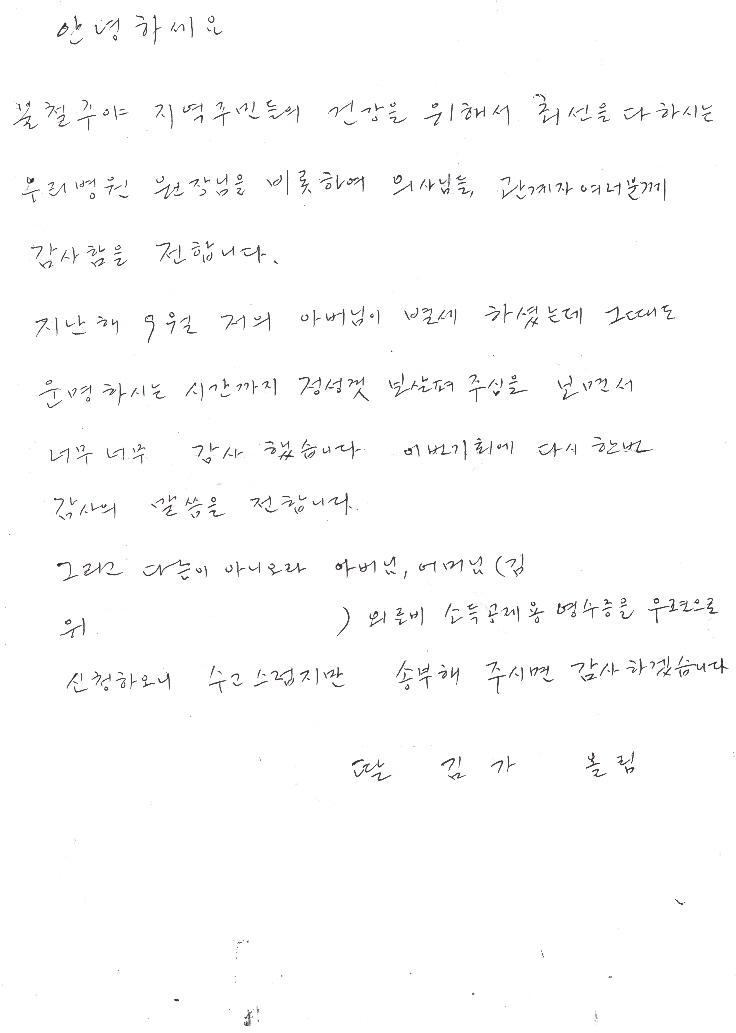 안녕하세요
불철주야 지역주민들의 건강을 위해서 최선을 다하시는
우리병원 원장님을 비롯하여 의사님들, 관계자여러분께
감사함을 전합니다.
지난해 9월 저의 아버님이 별세 하셨는데 그때도
운명하시는 시간까지 정성껏 보살펴 주심을 보면서
너무너무 감사 했습니다 이번기회에 다시 한번
감사의 말씀을 전합니다.
그리고 다름이 아니오라 아버님, 어머님 (김
위 ) 의료비 소득공제용 영수증을 우편으로
신청하오니 수고스럽지만 송부해 주시면 감사하겠습니다
딸 김 가 올림